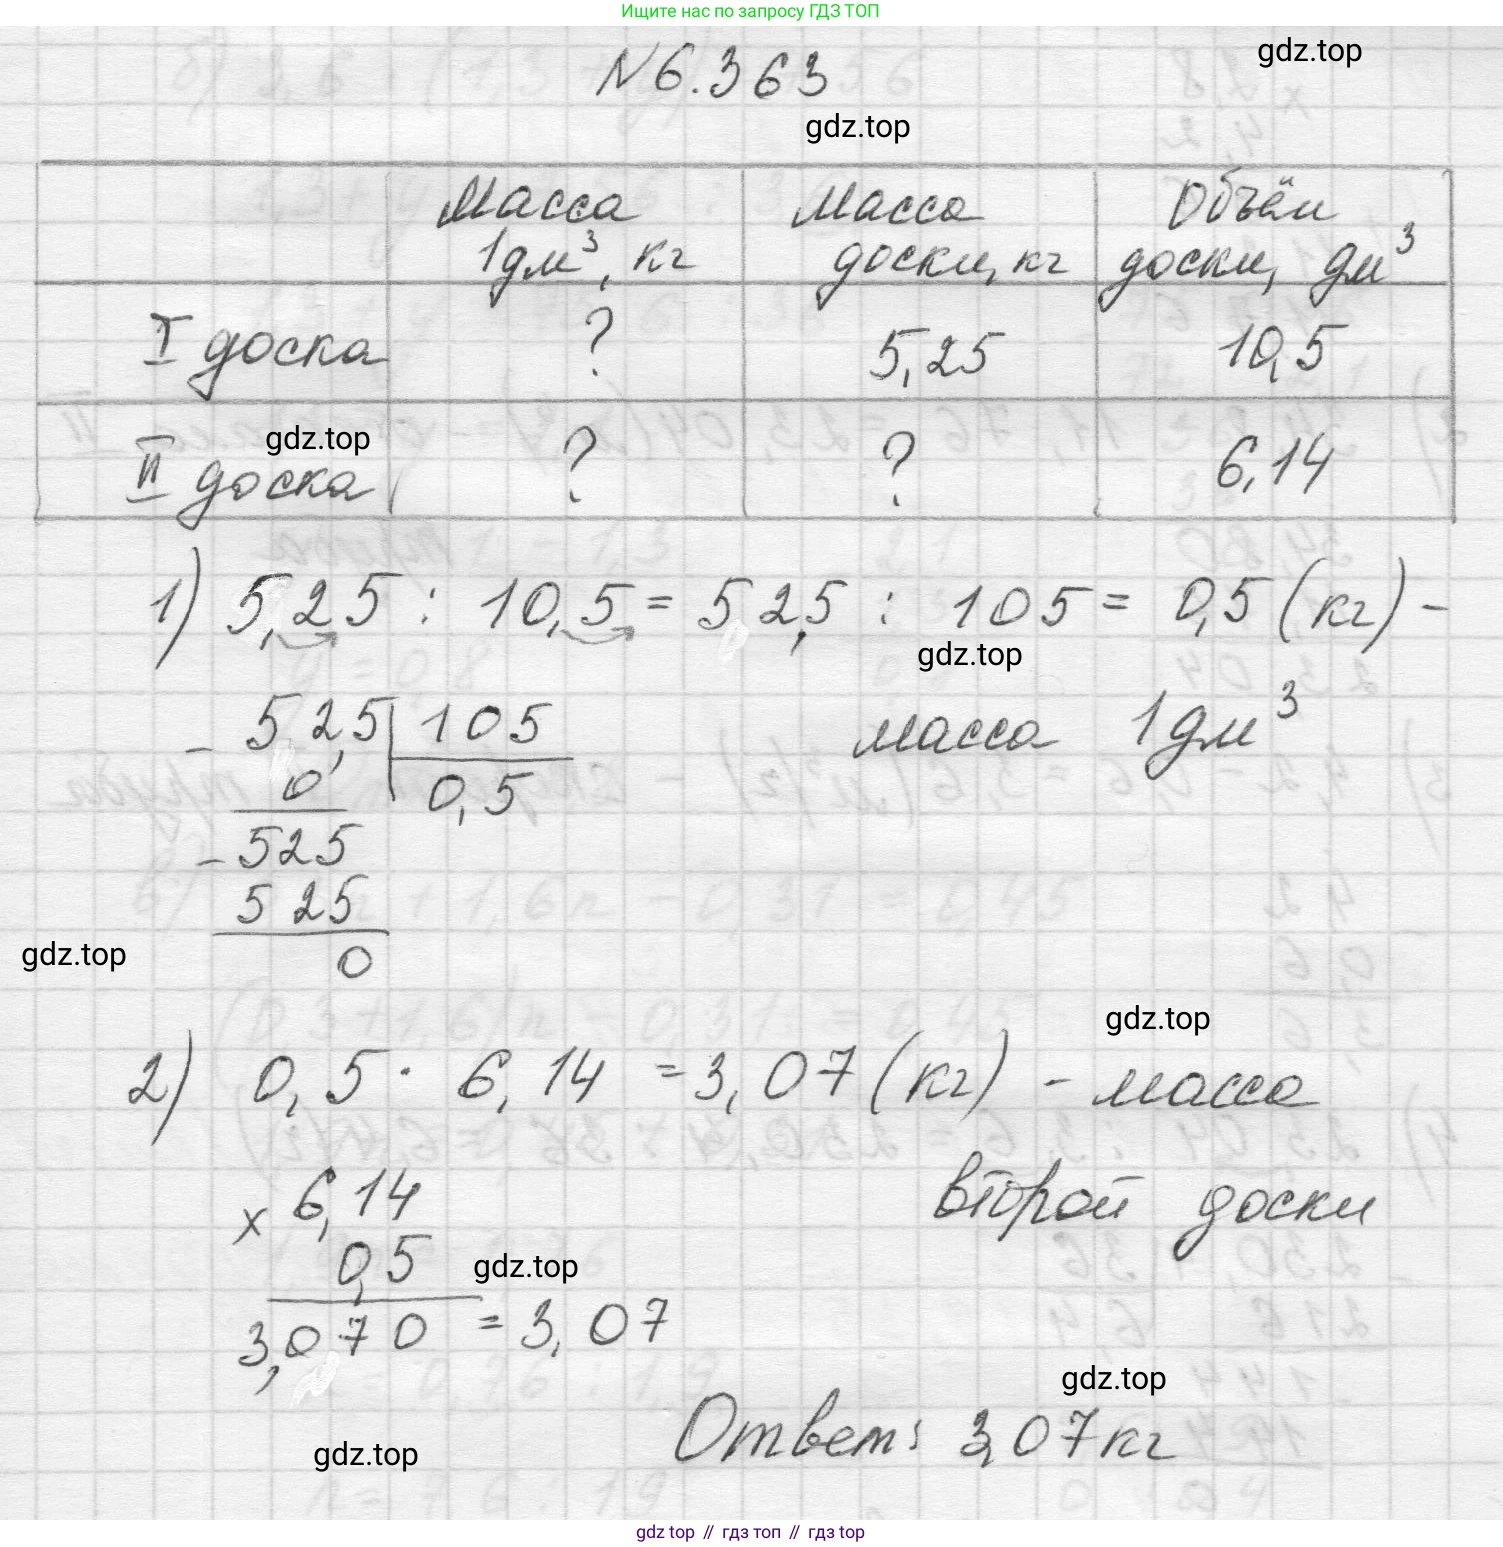 Ищите нас по запросу ГДЗ ТОП
gdz.top
N 6.363
gdz.top
Масса 1дм³, кг | Масса доски, кг | Объём доски, дм³
I доска | ? | 5,25 | 10,5
gdz.top
II доска | ? | ? | 6,14
1) 5,25 : 10,5 = 52,5 : 105 = 0,5 (кг) -
gdz.top
масса 1дм³
- 52,5 | 105
0 | 0,5
- 525
525
0
gdz.top
gdz.top
2) 0,5 · 6,14 = 3,07 (кг) - масса
второй доски
× 6,14
0,5
gdz.top
3,070 = 3,07
gdz.top
Ответ: 3,07 кг
gdz.top
gdz top // гдз топ // гдз top